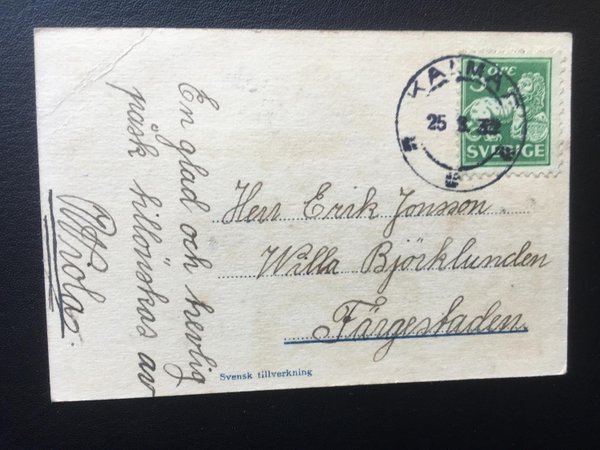 En glad och trevlig
påsk tillönskas av
Viola.
KALMAR
25 3 32
5 ÖRE
SVERIGE
Herr Erik Jonsson
Willa Björklunden
Färgestaden.
Svensk tillverkning